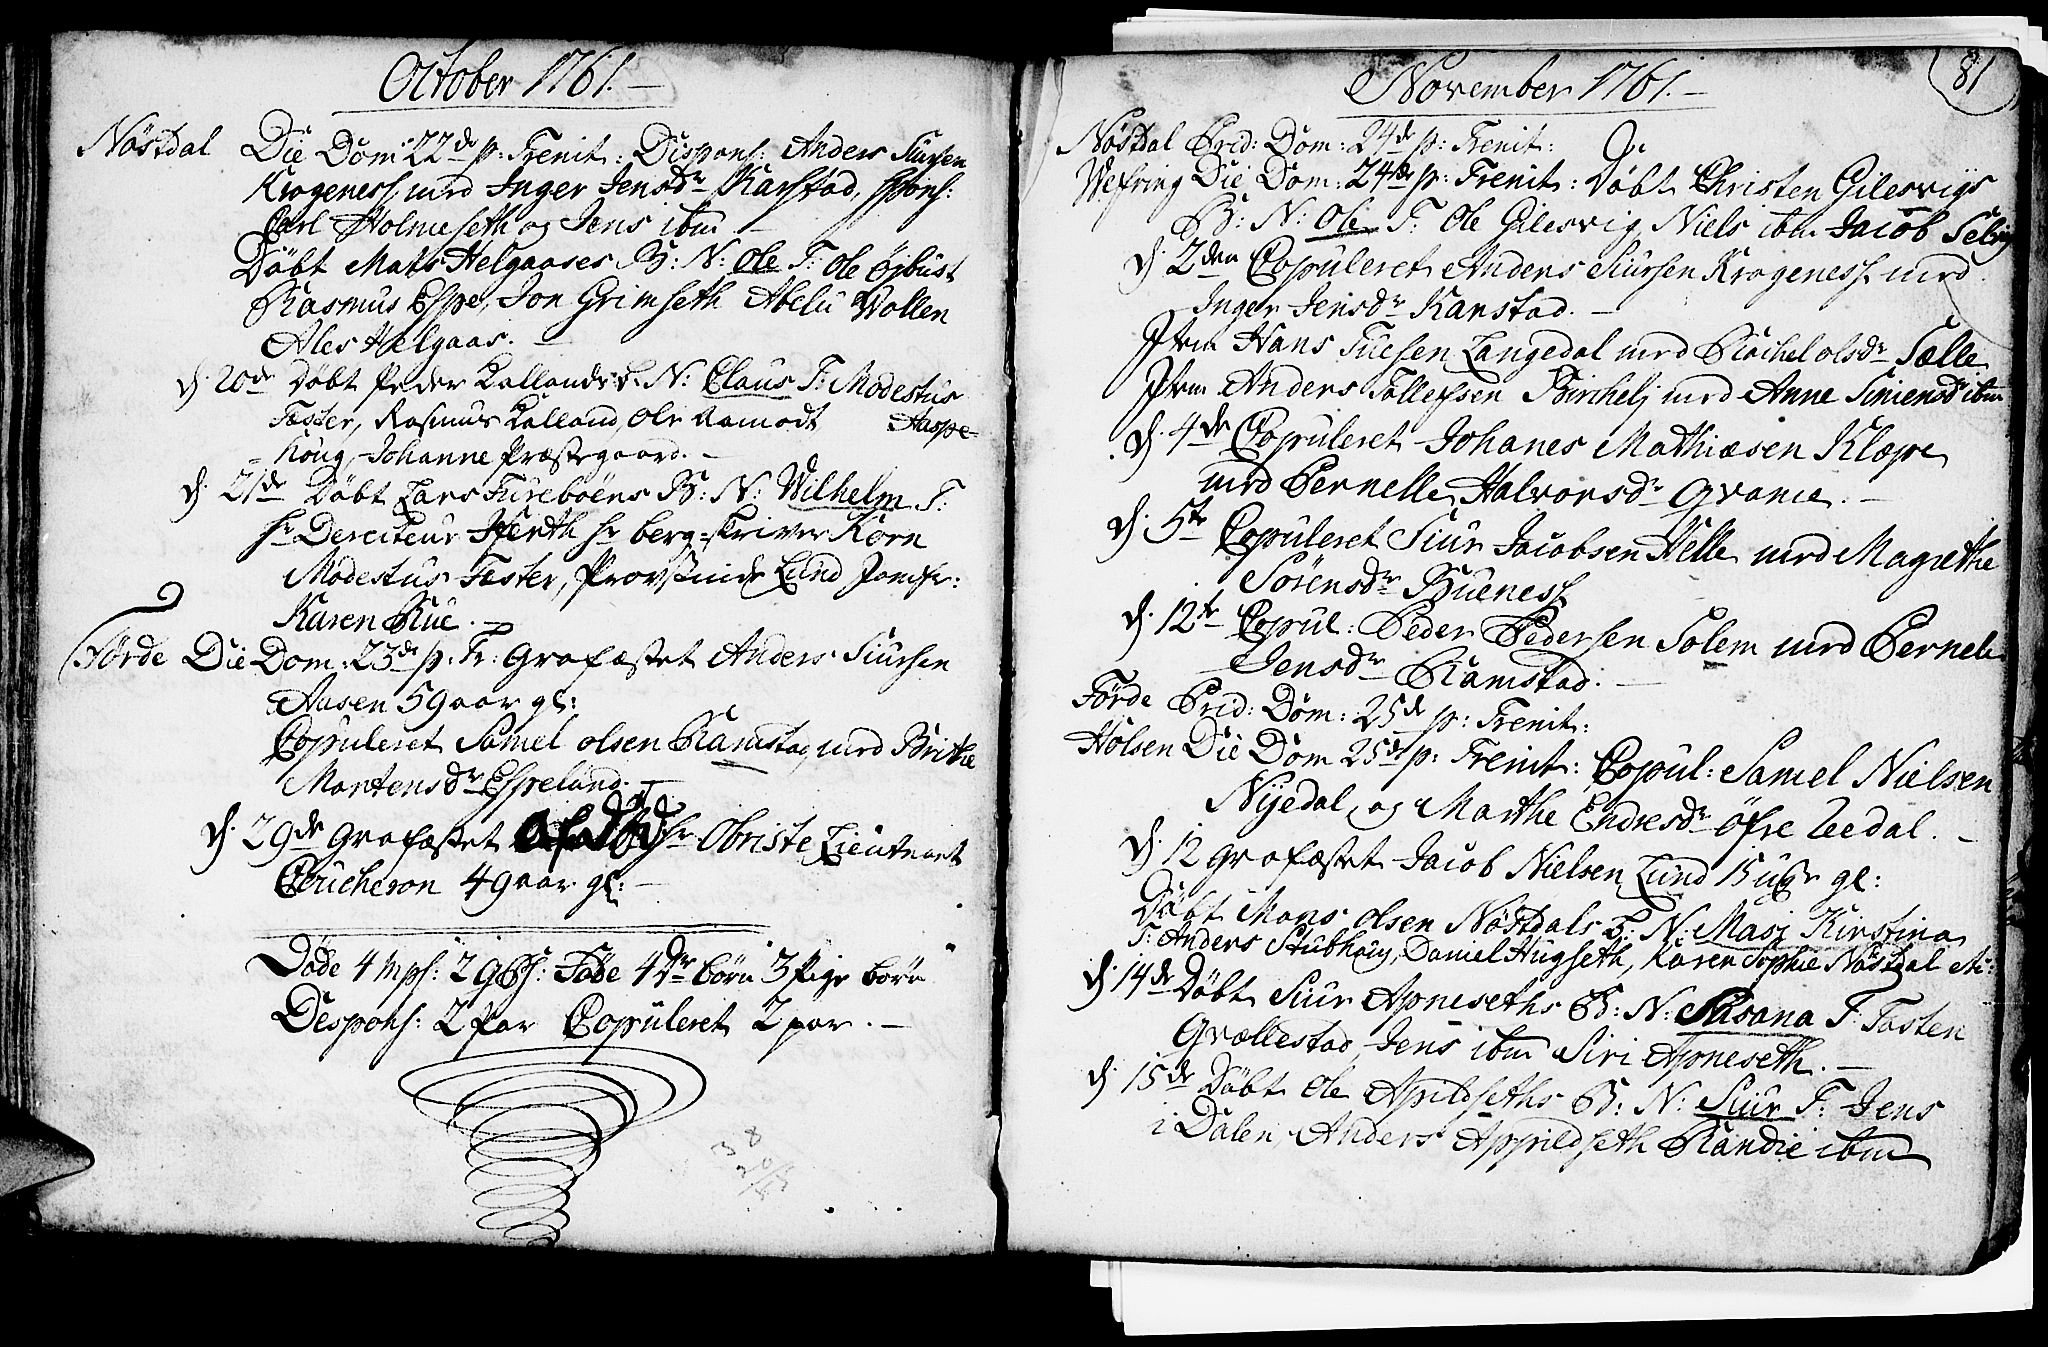 October 1761.
Nöstdal Die Dom: 22de p: Trenit: Dispons: Anders Siursen
Krogeness med Inger Jensdr Karstad, spons:
Carl Holmeseth og Jens ibm
Döbt Mats Helgaases B: N: Ole F: Ole öjbust
Rasmus Espe, Jon Grimseth Abelu Wollen
Ales Helgaas.
d. 20de Döbt Peder Kallands B. N: Claus F: Modestus
Fester, Rasmus Kalland, Ole Ramodt Haspe-
houg, Johanne Præstegaard.
d. 21de Döbt Lars Fureböens B: N: Wilhelm F:
hr Derecteur Herth hr berg-skriver Korn
Modestus Fester, Provstinde Lund Jomfr:
Karen Bue.
Förde Die Dom: 23de p: Tr: Grafæstet Anders Siursen
Aasen 59 aar gl:
Copuleret Samel olsen Ramstag med Brithe
Martensdr Espeland.
d. 29de Grafæstet hr Obriste Lieutnant
Coucheron 49 aar gl:
Döde 4 mps: 2 gbs: Föde 4 Dr: börn 3 Pige börn
Despons: 2 par Copuleret 2 par.
38
November 1761.
81
Nöstdal Prid: Dom: 24de p: Trenit:
Wefring Die Dom: 24de p: Trenit: Döbt Christen Gilesvigs
B: N: Ole F: Ole Gilesvig Niels ibm Jacob Selvig
d. 2den Copuleret Anders Siursen Krogeness med
Inger Jensdr Karstad.
Item Hans Tuesen Langedal med Rachel olsdr Sælle
Item Anders Tollefsen Birchelj med Anne Simensdr ibm
d. 4de Copuleret Johanes Mathiæsen Klæpe
med Pernelle Halvorsdr Qvame.
d. 5te Copuleret Siur Jacobsen Helle med Magrethe
Sörensdr Bueness
d. 12te Copul: Peder Pedersen Solem med Pernele
Jensdr Ramstad.
Förde Prid: Dom: 25de p: Trenit:
Holsen Die Dom 25de p: Trenit: Copul: Samel Nielsen
Nijedal og Marthe Endresdr öfre Eedal.
d. 12 Grafæstet Jacob Nielsen Lund 15 uger gl:
Döbt Mons olsen Nöstdals B: N: Masi Kirstina
F: Anders Stubhoug, Daniel Hugseth, Karen Sophie Nöstdal
d. 14de Döbt Siur Apneseths B: N: Susana F: Tosten
Qvællestad, Jens ibm Siri Apneseth.
d. 15de Döbt Ole Apildseths B: N: Siur F: Jens
i Dalen, Anders Appildseth Randie ibm